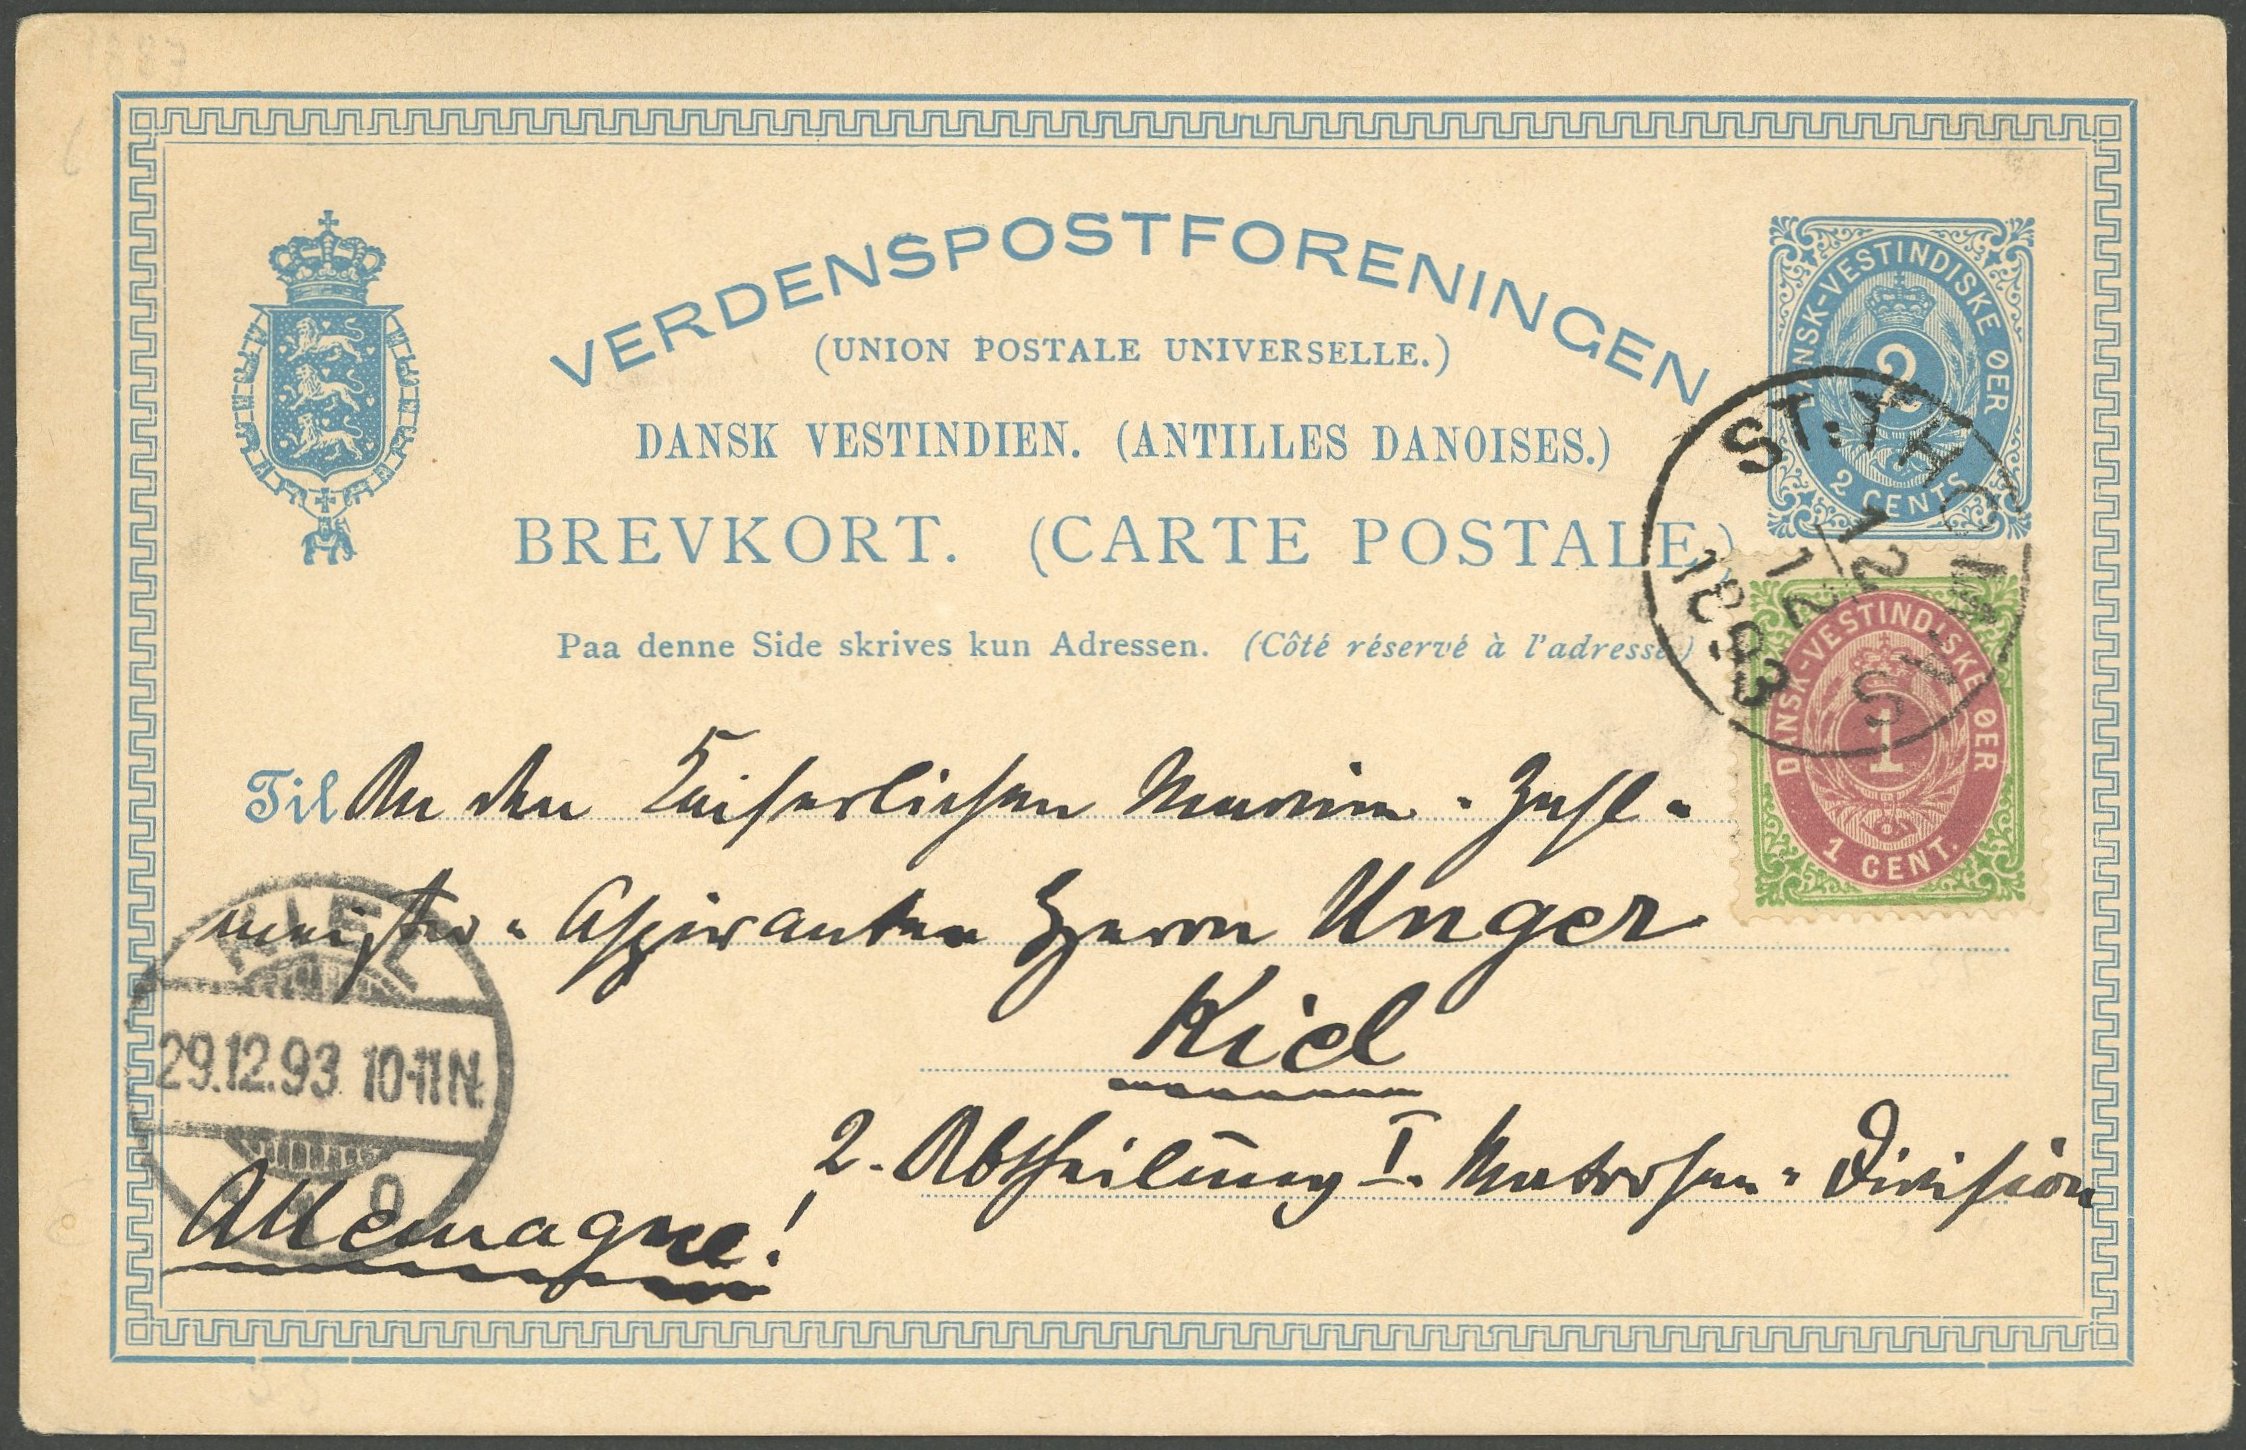 VERDENSPOSTFORENINGEN
(UNION POSTALE UNIVERSELLE.)
DANSK VESTINDIEN. (ANTILLES DANOISES.)
BREVKORT. (CARTE POSTALE)
Paa denne Side skrives kun Adressen. (Côté réservé à l'adresse)
DANSK-VESTINDISKE ØER
2
2 CENTS
ST. THOMAS
12
12
1893
DANSK-VESTINDISKE ØER
1
1 CENT.
Til An den Kaiserlichen Marine-Zahl-
meister-Aspiranten Herrn Unger
Kiel
2. Abtheilung I. Matrosen-Division
Allemagne!
KIEL
29.12.93 10-11N.